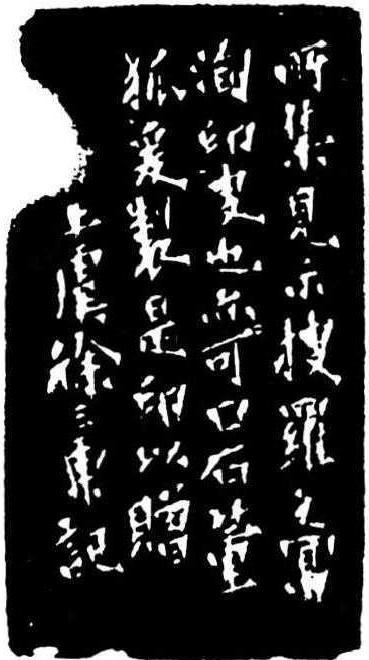 所集見示搜羅之富
洵印史也亦可曰石董
狐爰製是印以贈
上虞徐三庚記